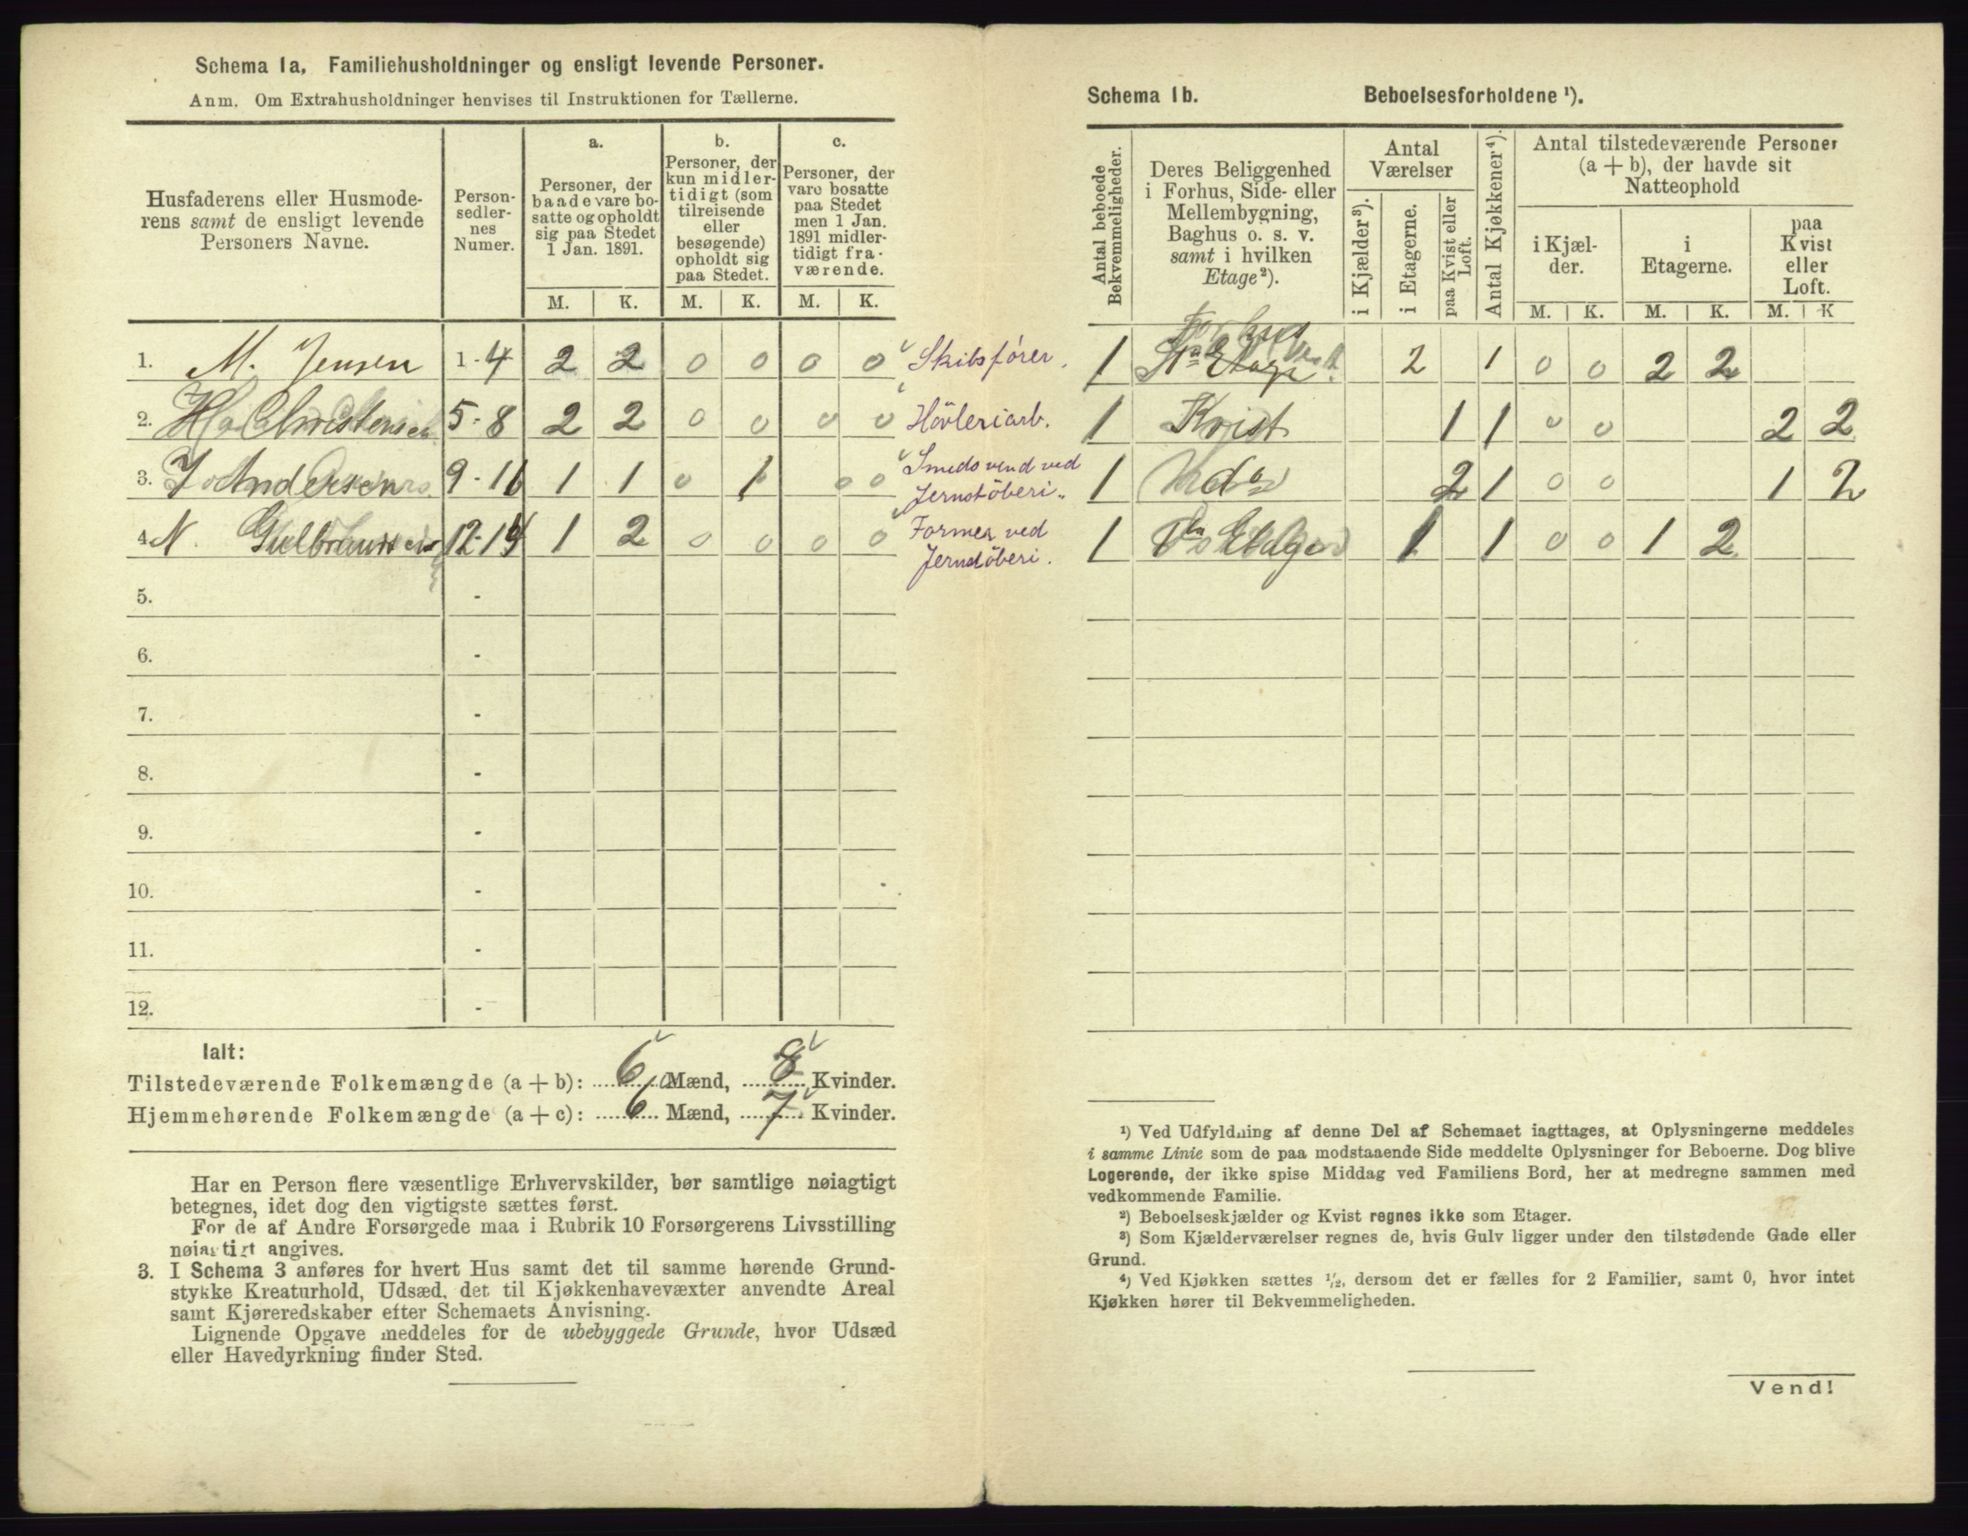 Schema 1a, Familiehusholdninger og ensligt levende Personer.
Anm. Om Extrahusholdninger henvises til Instruktionen for Tællerne.
Husfaderens eller Husmode-
rens samt de ensligt levende
Personers Navne.
Person-
sedler-
nes
Numer.
a.
Personer, der
baade vare bo-
satte og opholdt
sig paa Stedet
1 Jan. 1891.
b.
Personer, der
kun midler-
tidigt (som
tilreisende
eller
besøgende)
opholdt sig
paa Stedet.
c.
Personer, der
vare bosatte
paa Stedet
men 1 Jan.
1891 midler-
tidigt fra-
værende.
M. K. M. K. M. K.
1. M. Jensen 1-4 2 2 0 0 0 0 Skibsfører.
2. H. Christensen 5-8 2 2 0 0 0 0 Hövleriarb.
3. J. Andersen 9-11 1 1 0 1 0 0 Smedsvend ved
Jernstöberi..
4. N. Gulbrandsen 12-14 1 2 0 0 0 0 Former ved
Jernstöberi.
5. -
6. -
7. -
8. -
9. -
10. -
11. -
12. -
Ialt:
Tilstedeværende Folkemængde (a+b): 6 Mænd, 8 Kvinder.
Hjemmehørende Folkemængde (a+c): 6 Mænd, 7 Kvinder.
Har en Person flere væsentlige Erhvervskilder, bør samtlige nøiagtigt
betegnes, idet dog den vigtigste sættes først.
For de af Andre Forsørgede maa i Rubrik 10 Forsørgerens Livsstilling
nøiagtigt angives.
3. I Schema 3 anføres for hvert Hus samt det til samme hørende Grund-
stykke Kreaturhold, Udsæd, det til Kjøkkenhavevæxter anvendte Areal
samt Kjøreredskaber efter Schemaets Anvisning.
Lignende Opgave meddeles for de ubebyggede Grunde, hvor Udsæd
eller Havedyrkning finder Sted.
Schema 1b. Beboelsesforholdene ¹).
Antal beboede
Bekvemmeligheder.
Deres Beliggenhed
i Forhus, Side- eller
Mellembygning,
Baghus o. s. v.
samt i hvilken
Etage²).
Antal
Værelser
i Kjælder³).
i Etagerne.
paa Kvist eller
Loft.
Antal Kjøkkener⁴).
Antal tilstedeværende Personer
(a+b), der havde sit
Natteophold
i Kjæl-
der.
i
Etagerne.
paa
Kvist
eller
Loft.
M. K. M. K. M. K
1 Etage 2 1 0 0 2 2
1 Kvist 1 1 0 0 2 2
1 do 2 1 0 0 1 2
1 Etage 1 1 0 0 1 2
¹) Ved Udfyldning af denne Del af Schemaet iagttages, at Oplysningerne meddeles
i samme Linie som de paa modstaaende Side meddelte Oplysninger for Beboerne. Dog blive
Logerende, der ikke spise Middag ved Familiens Bord, her at medregne sammen med
vedkommende Familie.
²) Beboelseskjælder og Kvist regnes ikke som Etager.
³) Som Kjælderværelser regnes de, hvis Gulv ligger under den tilstødende Gade eller
Grund.
⁴) Ved Kjøkken sættes ½, dersom det er fælles for 2 Familier, samt 0, hvor intet
Kjøkken hører til Bekvemmeligheden.
Vend!